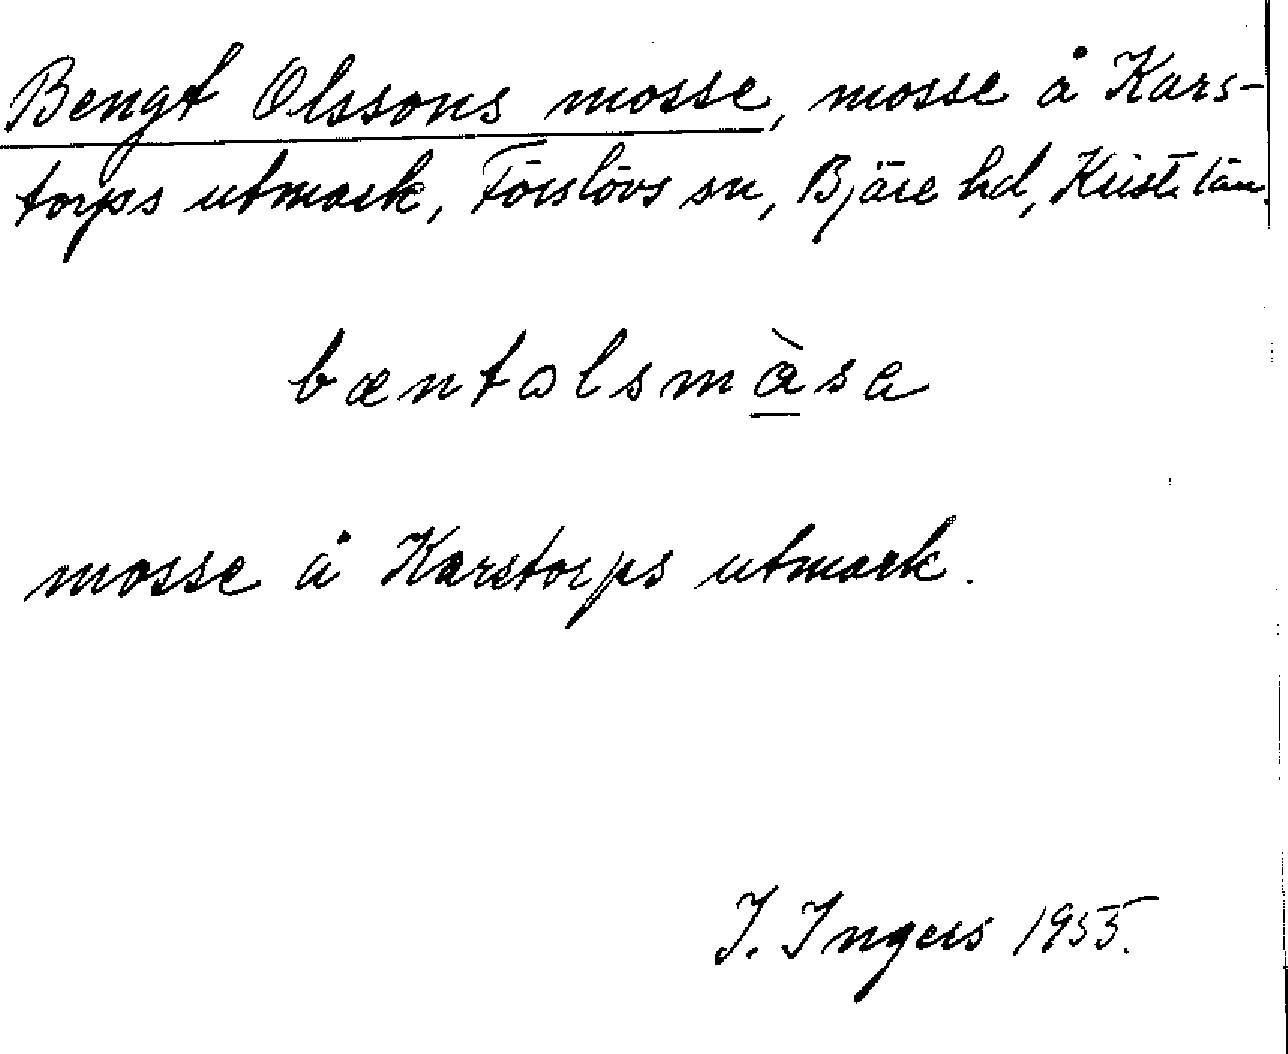 Bengt Olssons mosse, mosse å Kars-
torps utmark, Förslövs sn, Bjäre hd, Krist. län.
bæntolsmàsa
mosse å Karstorps utmark.
I. Ingers 1955.